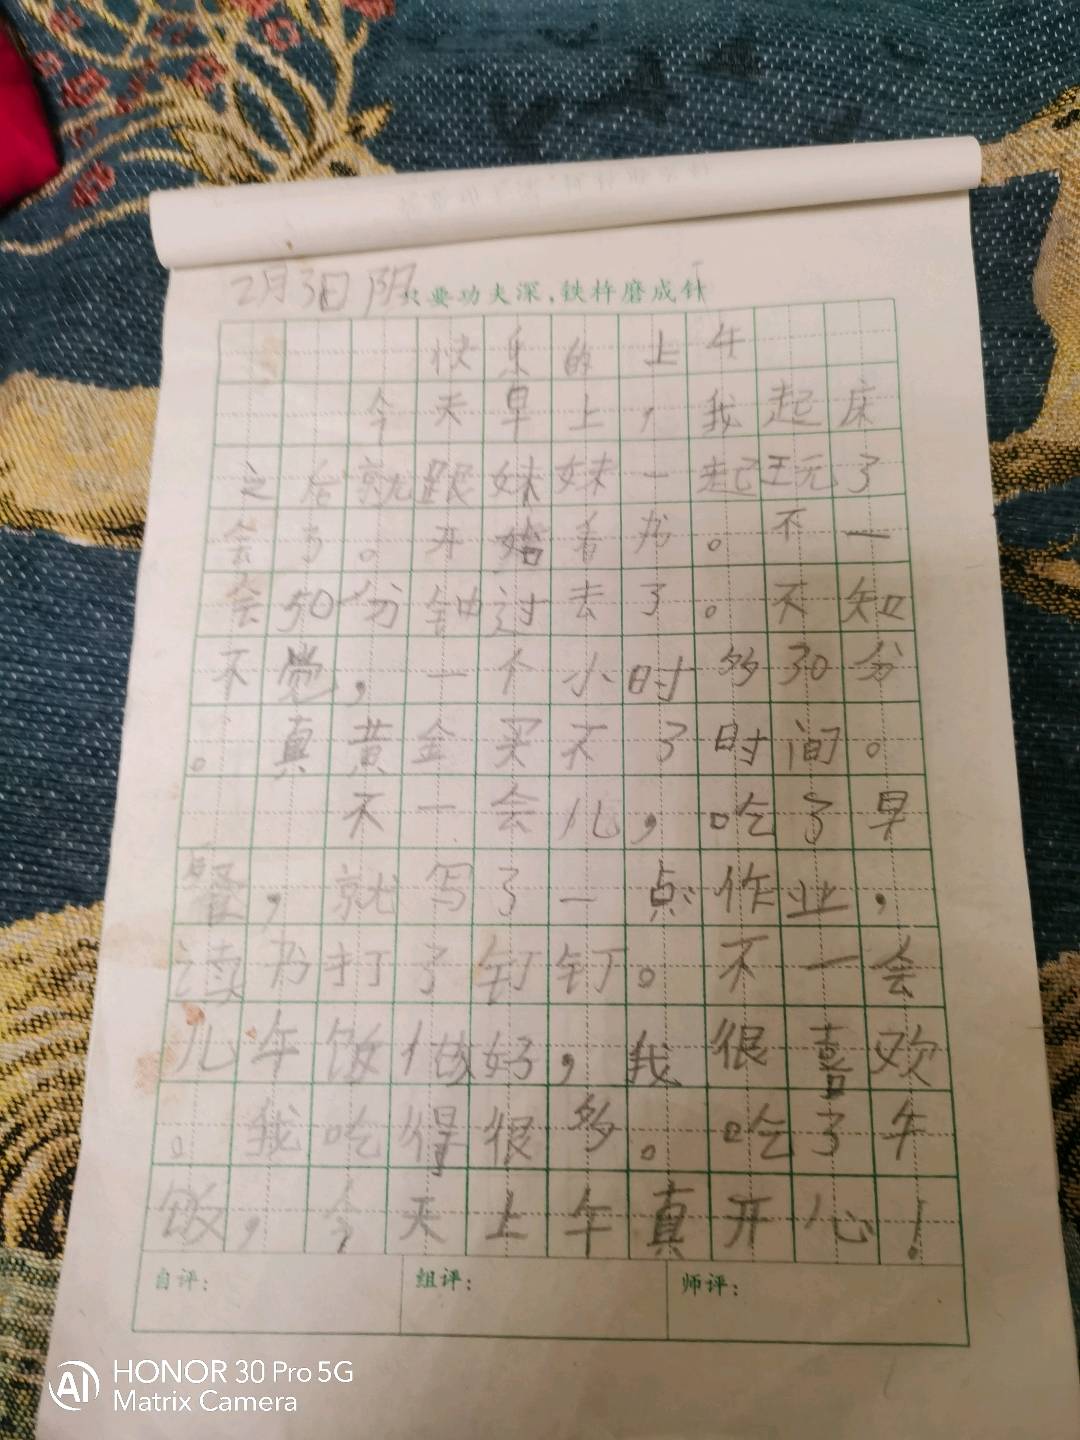 2月3日 阴
只要功夫深,铁杵磨成针
快乐的上午
今天早上，我起床
之后就跟妹妹一起玩了
会了。开始看书。不一
会50分钟过去了。不知
不觉，一个小时多30分
。真黄金买不了时间。
不一会儿，吃了早
餐，就写了一点作业，
读书打了钉钉。不一会
儿午饭做好，我很喜欢
。我吃得很多。吃了午
饭，今天上午真开心！
自评: 组评: 师评:
HONOR 30 Pro 5G
Matrix Camera